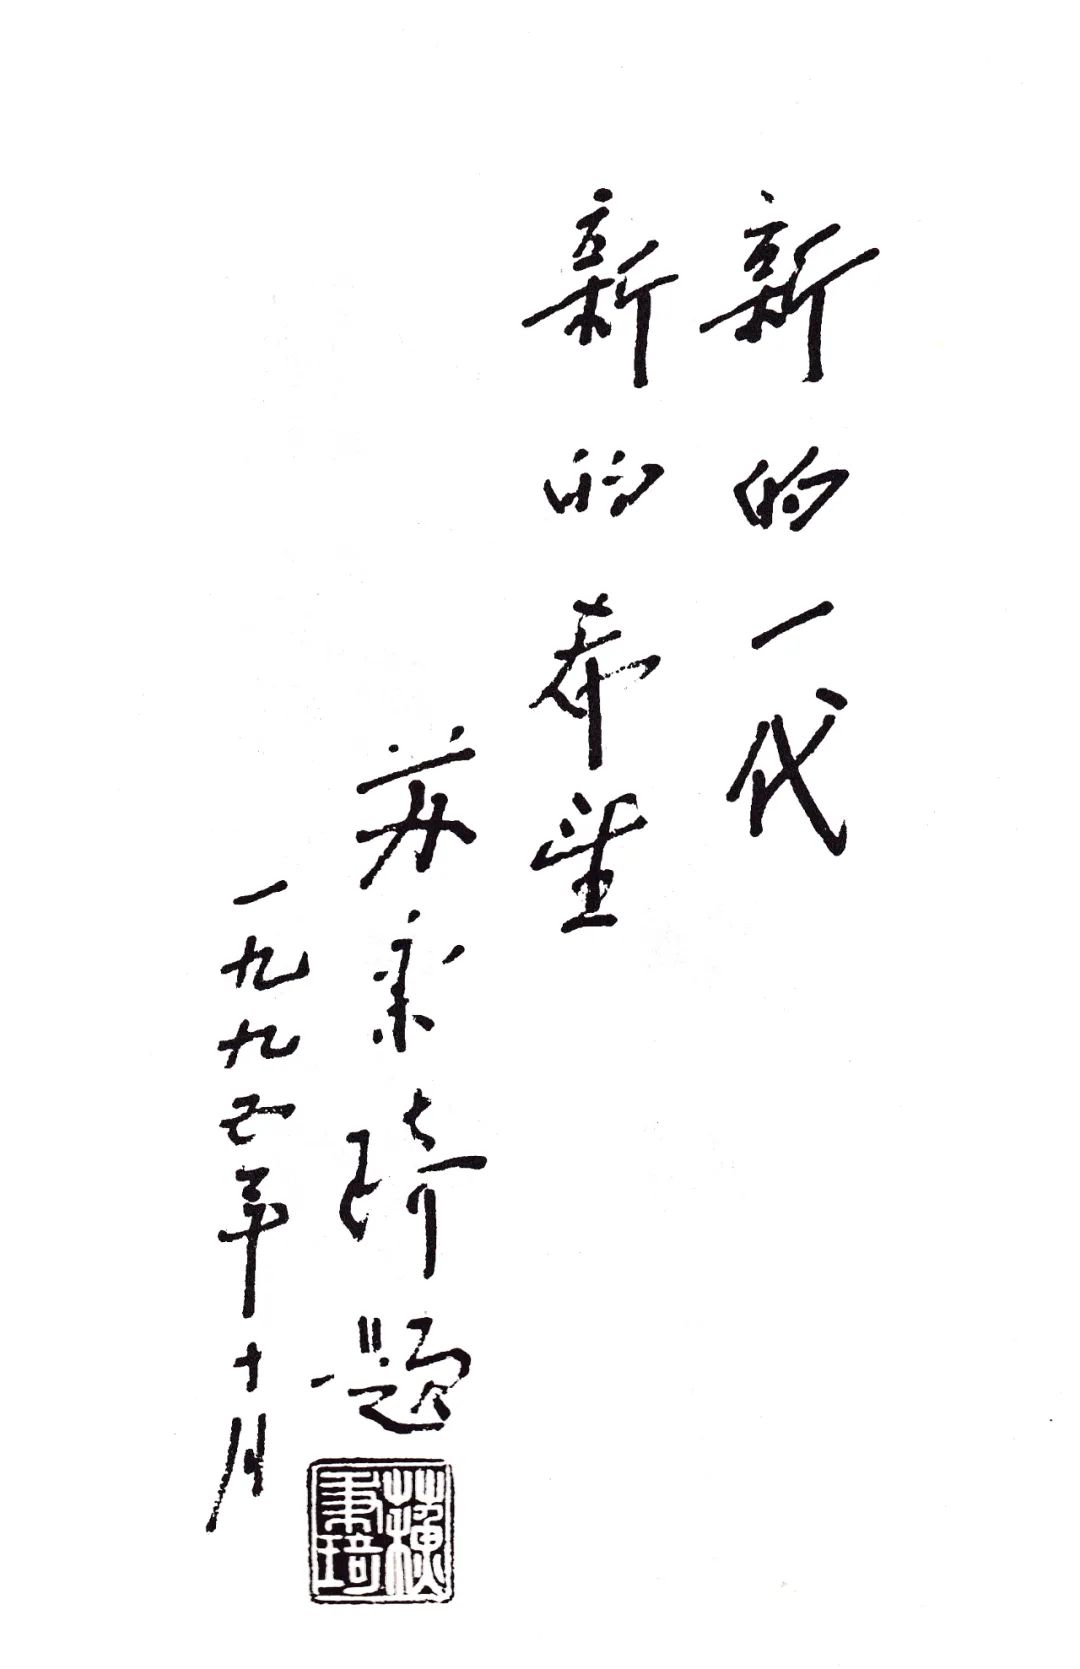 新的一代
新的希望
苏秉琦题
一九九四年十月
蘇秉琦